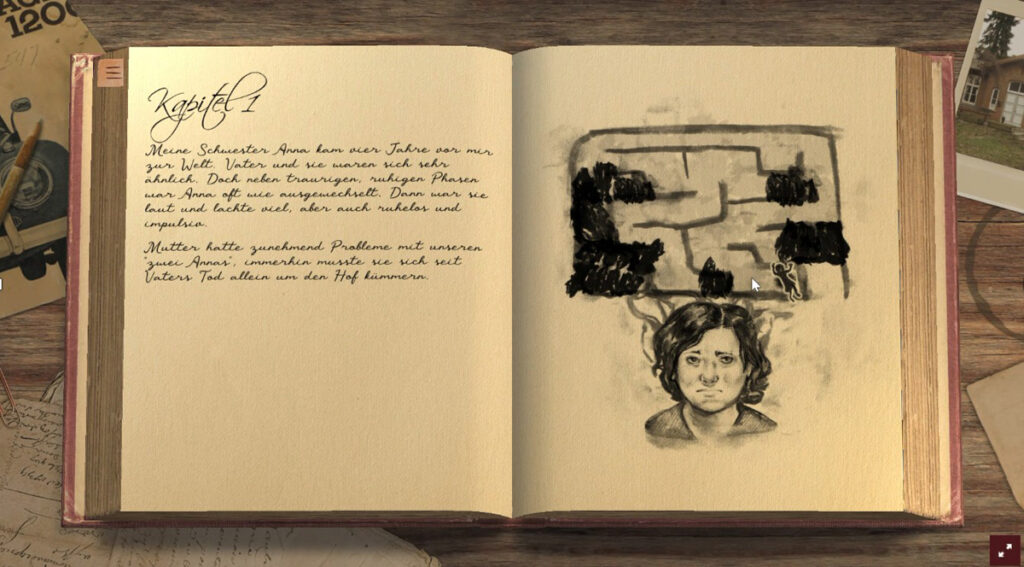 1200
Kapitel 1
Meine Schwester Anna kam vier Jahre vor mir
zur Welt. Vater und sie waren sich sehr
ähnlich. Doch neben traurigen, ruhigen Phasen
war Anna oft wie ausgewechselt. Dann war sie
laut und lachte viel, aber auch ruhelos und
impulsiv.
Mutter hatte zunehmend Probleme mit unseren
"zwei Annas", immerhin musste sie sich seit
Vaters Tod allein um den Hof kümmern.